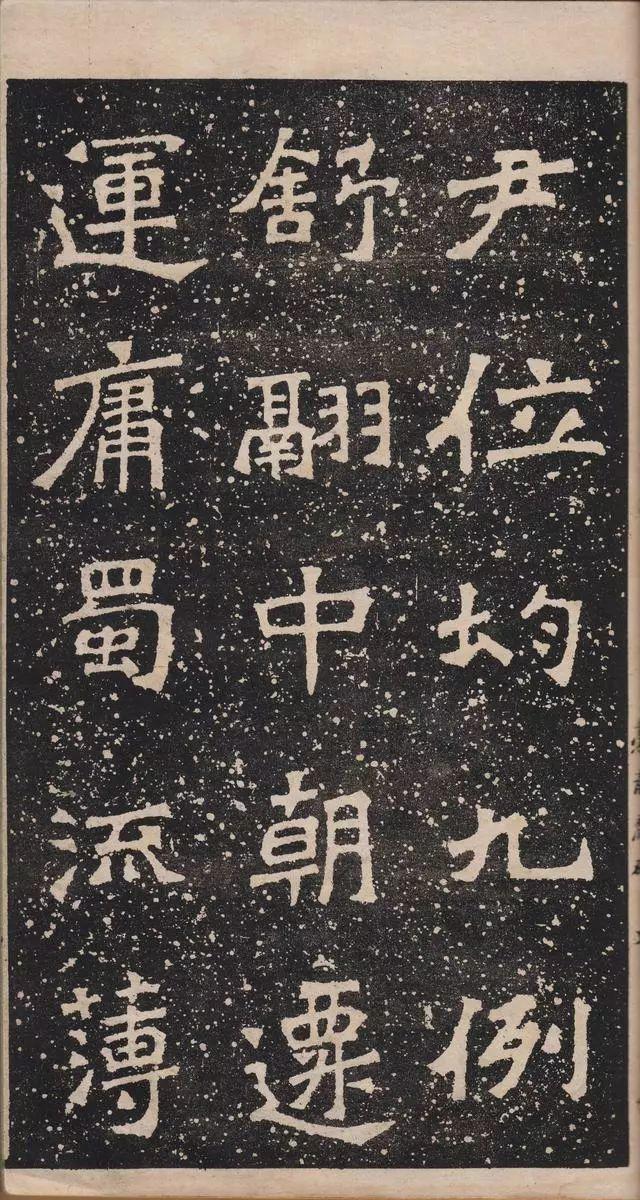 尹位均九例
舒翮中朝遷
運庸蜀流薄